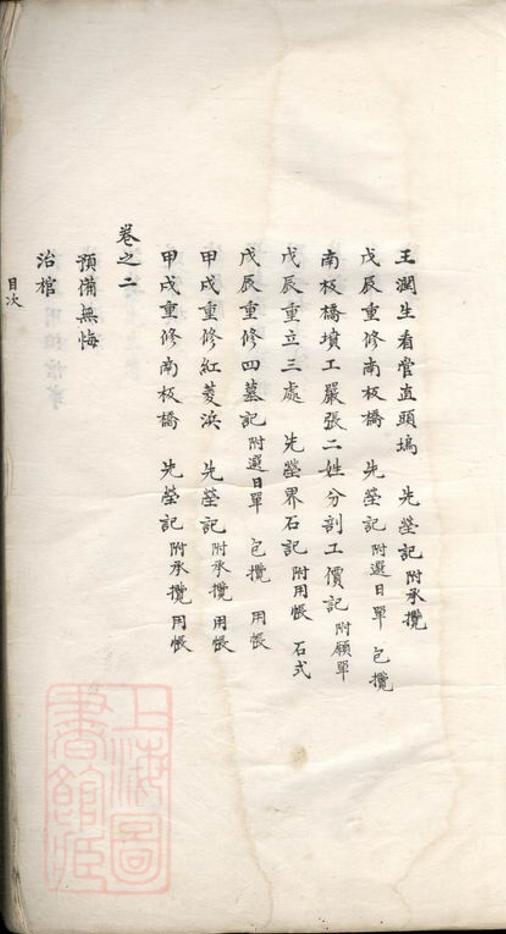 王潤生看管直頭塢　先塋記附承攬
戊辰重修南板橋　先塋記附選日單　包攬
南板橋墳工嚴張二姓分剖工價記附願單
戊辰重立三處　先塋界石記附用帳　石式
戊辰重修四墓記附選日單　包攬　用帳
甲戌重修紅菱浜　先塋記附承攬　用帳
甲戌重修南板橋　先塋記附承攬　用帳
卷之二
預備無悔
治棺
目次
上海圖
書館藏